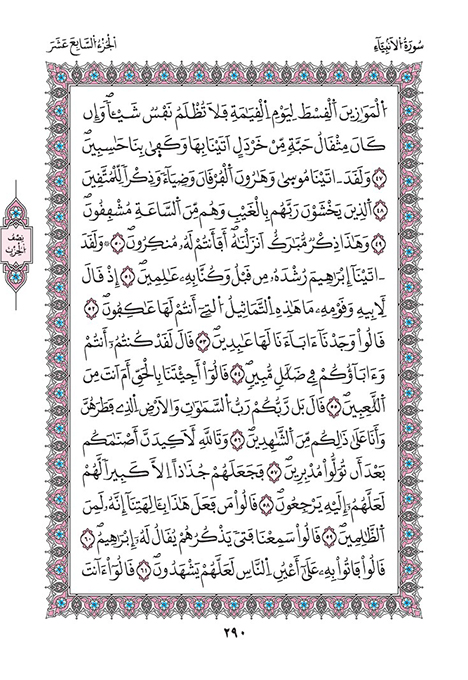 سُورَةُ الْأَنْبِيَاءِ
الجُزْءُ السَّابِعَ عَشَرَ
اَ۬لْمَوَٰزِينَ اَ۬لْقِسْطَ لِيَوْمِ اِ۬لْقِيَٰمَةِ فَلَا تُظْلَمُ نَفْسٌ شَيْـٔاًۖ وَإِن
كَانَ مِثْقَالُ حَبَّةٍ مِّنْ خَرْدَلٍ اَتَيْنَا بِهَا وَكَفَىٰ بِنَا حَٰسِبِينَۖ
٤٧ وَلَقَدَ اٰتَيْنَا مُوسَىٰ وَهَٰرُونَ اَ۬لْفُرْقَانَ وَضِيَآءً وَذِكْراً لِّلْمُتَّقِينَ
٤٨ اَ۬لذِينَ يَخْشَوْنَ رَبَّهُم بِالْغَيْبِ وَهُم مِّنَ اَ۬لسَّاعَةِ مُشْفِقُونَۖ
٤٩ وَهَٰذَا ذِكْرٌ مُّبَٰرَكٌ اَنزَلْنَٰهُۖ أَفَأَنتُمْ لَهُۥ مُنكِرُونَۖ ٥٠ ۞ وَلَقَدَ
اٰتَيْنَآ إِبْرَٰهِيمَ رُشْدَهُۥ مِن قَبْلُ وَكُنَّا بِهِۦ عَٰلِمِينَ ٥١ إِذْ قَالَ
لِأَبِيهِ وَقَوْمِهِۦ مَا هَٰذِهِ اِ۬لتَّمَاثِيلُ اُ۬لتِےٓ أَنتُمْ لَهَا عَٰكِفُونَۖ ٥٢
قَالُواْ وَجَدْنَآ ءَابَآءَنَا لَهَا عَٰبِدِينَۖ ٥٣ قَالَ لَقَدْ كُنتُمُۥٓ أَنتُمْ
وَءَابَآؤُكُمْ فِے ضَلَٰلٍ مُّبِينٍۖ ٥٤ قَالُوٓاْ أَجِئْتَنَا بِالْحَقِّ أَمَ اَنتَ مِنَ
اَ۬للَّٰعِبِينَۖ ٥٥ قَالَ بَل رَّبُّكُمْ رَبُّ اُ۬لسَّمَٰوَٰتِ وَالَارْضِ اِ۬لذِے فَطَرَهُنَّ
وَأَنَا عَلَىٰ ذَٰلِكُم مِّنَ اَ۬لشَّٰهِدِينَۖ ٥٦ وَتَاللَّهِ لَأَكِيدَنَّ أَصْنَٰمَكُم
بَعْدَ أَن تُوَلُّواْ مُدْبِرِينَۖ ٥٧ فَجَعَلَهُمْ جُذَٰذاً اِلَّا كَبِيراً لَّهُمْ
لَعَلَّهُمُۥٓ إِلَيْهِ يَرْجِعُونَۖ ٥٨ قَالُواْ مَن فَعَلَ هَٰذَا بِـَٔالِهَتِنَآ إِنَّهُۥ لَمِنَ
اَ۬لظَّٰلِمِينَۖ ٥٩ قَالُواْ سَمِعْنَا فَتىً يَذْكُرُهُمْ يُقَالُ لَهُۥٓ إِبْرَٰهِيمُۖ ٦٠
قَالُواْ فَاتُواْ بِهِۦ عَلَىٰٓ أَعْيُنِ اِ۬لنَّاسِ لَعَلَّهُمْ يَشْهَدُونَۖ ٦١ قَالُوٓاْ ءَآنتَ
نِصْفُ
الحِزْبِ
٢٩٠